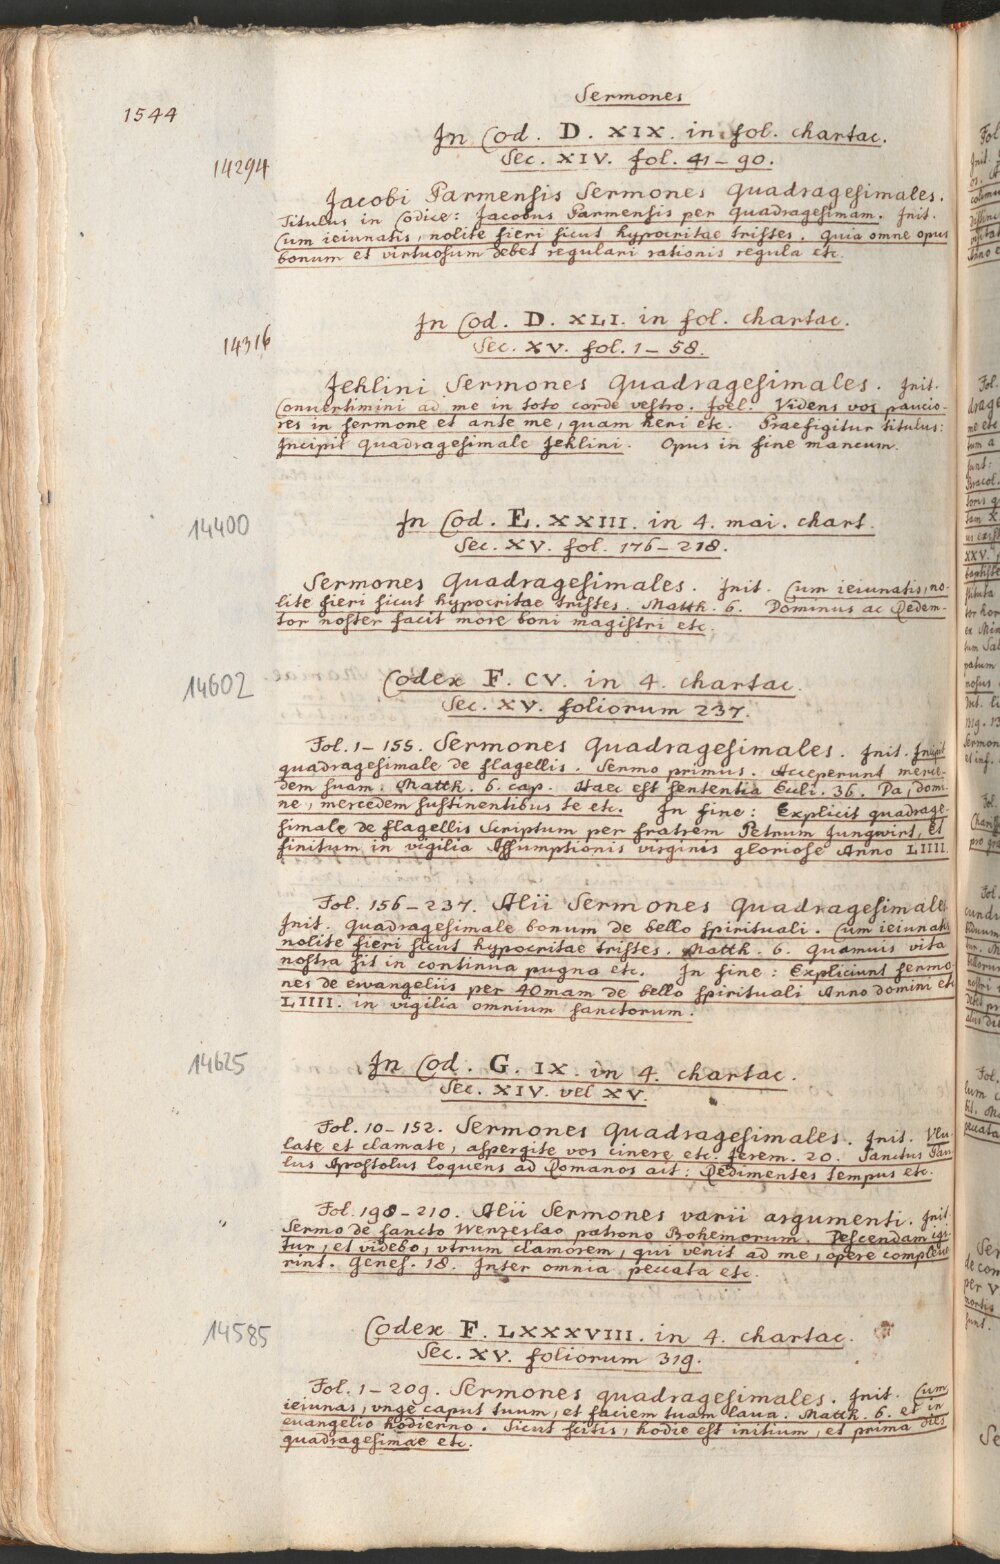 Sermones
1544
In Cod. D. XIX. in fol. chartac.
Sec. XIV. fol. 41–90.
14294
Jacobi Parmensis Sermones Quadragesimales.
Titulus in Codice: Jacobus Parmensis per Quadragesimam. Init.
Cum ieiunatis, nolite fieri sicut hypocritae tristes. Quia omne opus
bonum et virtuosum debet regulari rationis regula etc.
In Cod. D. XLI. in fol. chartac.
14316
Sec. XV. fol. 1–58.
Jehlini Sermones Quadragesimales. Init.
Conuertimini ad me in toto corde vestro. Joel. Videns vos paucio-
res in sermone et ante me, quam heri etc. Praefigitur titulus:
Incipit Quadragesimale Jehlini. Opus in fine mancum.
14400
In Cod. E. XXIII. in 4. mai. chart.
Sec. XV. fol. 176–218.
Sermones Quadragesimales. Init. Cum ieiunatis, no-
lite fieri sicut hypocritae tristes. Matth. 6. Dominus ac Redem-
tor noster facit more boni magistri etc.
14602
Codex F. CV. in 4. chartac.
Sec. XV. foliorum 237.
Fol. 1–155. Sermones Quadragesimales. Init. Incipit
quadragesimale de flagellis. Sermo primus. Acceperunt merce-
dem suam. Matth. 6. cap. Haec est sententia Euli. 36. Da, domi-
ne, mercedem sustinentibus te etc. In fine: Explicit quadrage-
simale de flagellis Scriptum per fratrem Petrum Jungwirt, et
finitum in vigilia Assumptionis virginis gloriose Anno LIIII.
Fol. 156–237. Alii Sermones Quadragesimales
Init. Quadragesimale bonum de bello spirituali. Cum ieiunatis
nolite fieri sicut hypocritae tristes. Matth. 6. Quamuis vita
nostra sit in continua pugna etc. In fine: Expliciunt sermo-
nes de ewangeliis per 40mam de bello spirituali Anno domini etc
LIIII. in vigilia omnium sanctorum.
14625
In Cod. G. IX. in 4. chartac.
Sec. XIV. vel XV.
Fol. 10–152. Sermones Quadragesimales. Init. Vlu-
late et clamate, aspergite vos cinere etc. Jerem. 20. Sanctus Pau-
lus Apostolus loquens ad Romanos ait: Redimentes tempus etc.
Fol. 198–210. Alii Sermones varii argumenti. Init.
Sermo de sancto Wenzeslao patrono Bohemorum. Descendam igi-
tur, et videbo, vtrum clamorem, qui venit ad me, opere compleue-
rint. Genes. 18. Inter omnia peccata etc.
14585
Codex F. LXXXVIII. in 4. chartac.
Sec. XV. foliorum 319.
Fol. 1–209. Sermones quadragesimales. Init. Cum
ieiunas, vnge caput tuum, et faciem tuam laua. Matth. 6. et in
euangelio hodierno. Sicut scitis, hodie est initium, et prima dies
quadragesimae etc.